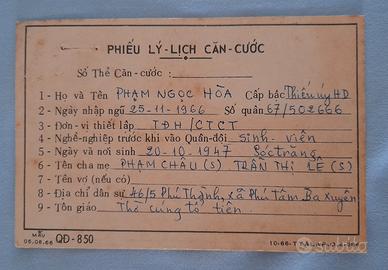 PHIẾU LÝ-LỊCH CĂN-CƯỚC
Số Thẻ Căn-cước :
1 - Họ và Tên PHẠM NGỌC HÒA Cấp bậc Thiếu úy HD
2 - Ngày nhập ngũ 25-11-1966 Số quân 67/502666
3 - Đơn-vị thiết lập TĐH/CTCT
4 - Nghề-nghiệp trước khi vào Quân-đội sinh-viên
5 - Ngày và nơi sinh 20-10-1947 Sóctrăng
6 - Tên cha mẹ PHẠM CHÂU (S) TRẦN THỊ LỄ (S)
7 - Tên vợ (nếu có)
8 - Địa chỉ dân sự A6/5 Phú Thạnh, xã Phú Tâm, Ba Xuyên
9 - Tôn giáo Thờ cúng tổ tiên.
MẪU
06.08.66 QĐ-850